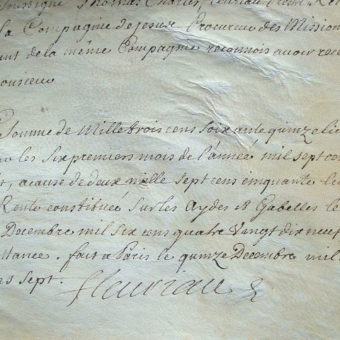 Soussigne Thomas Charles fleuriau
la Compagnie de jesus, Procureur des Mission
ant de la même Compagnie reconnois avoir rece
Monsieur
Somme de Mille trois cens soixante quinze li
les six premiers mois de l'année mil sept cen
t, acause de deux mille sept cens cinquante li
Rente constituée Sur les Aydes & Gabelles le
Decembre mil Six cens quatre Vingt dix neuf
ttance. fait a Paris le quinze Decembre mil
ns sept.
fleuriau